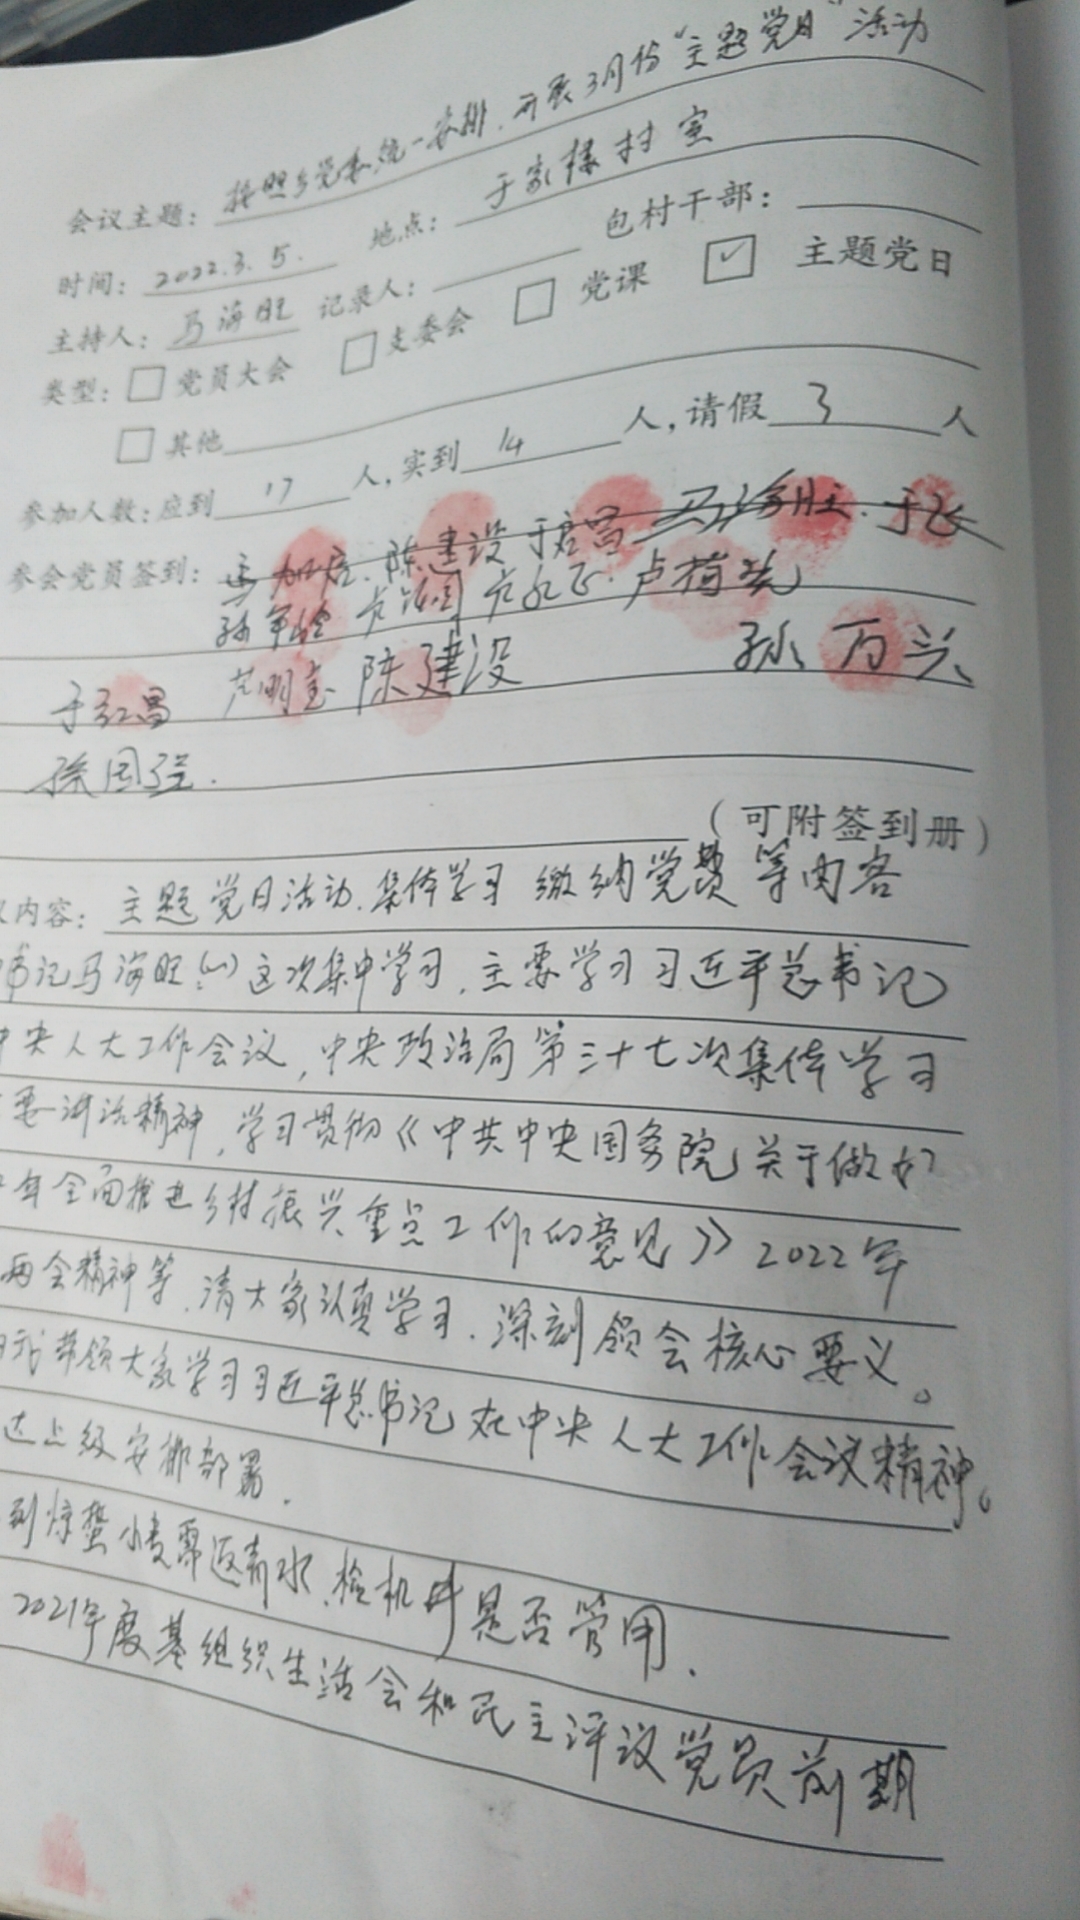 会议主题：按照乡党委统一安排，开展3月份“主题党日”活动
时间：2022.3.5. 地点：于家楼村室
主持人：马海旺 记录人： 包村干部：
类型：□党员大会 □支委会 □党课 ☑主题党日
□其他
参加人数：应到17人，实到14人，请假3人
参会党员签到：陈建设 于君昌 马海旺 于飞
卢荷光
于红昌 陈建设 孙万兴
徐国强.
（可附签到册）
内容：主题党日活动.集体学习 缴纳党费等内容
书记马海旺：(一)这次集中学习，主要学习习近平总书记
中央人大工作会议，中央政治局第三十七次集体学习
要讲话精神，学习贯彻《中共中央国务院关于做好
年全面推进乡村振兴重点工作的意见》2022年
两会精神等，请大家认真学习．深刻领会核心要义。
带领大家学习习近平总书记在中央人大工作会议精神。
达上级安排部署．
到惊蛰小麦需返青水．检机井是否管用．
2021年度基组织生活会和民主评议党员前期